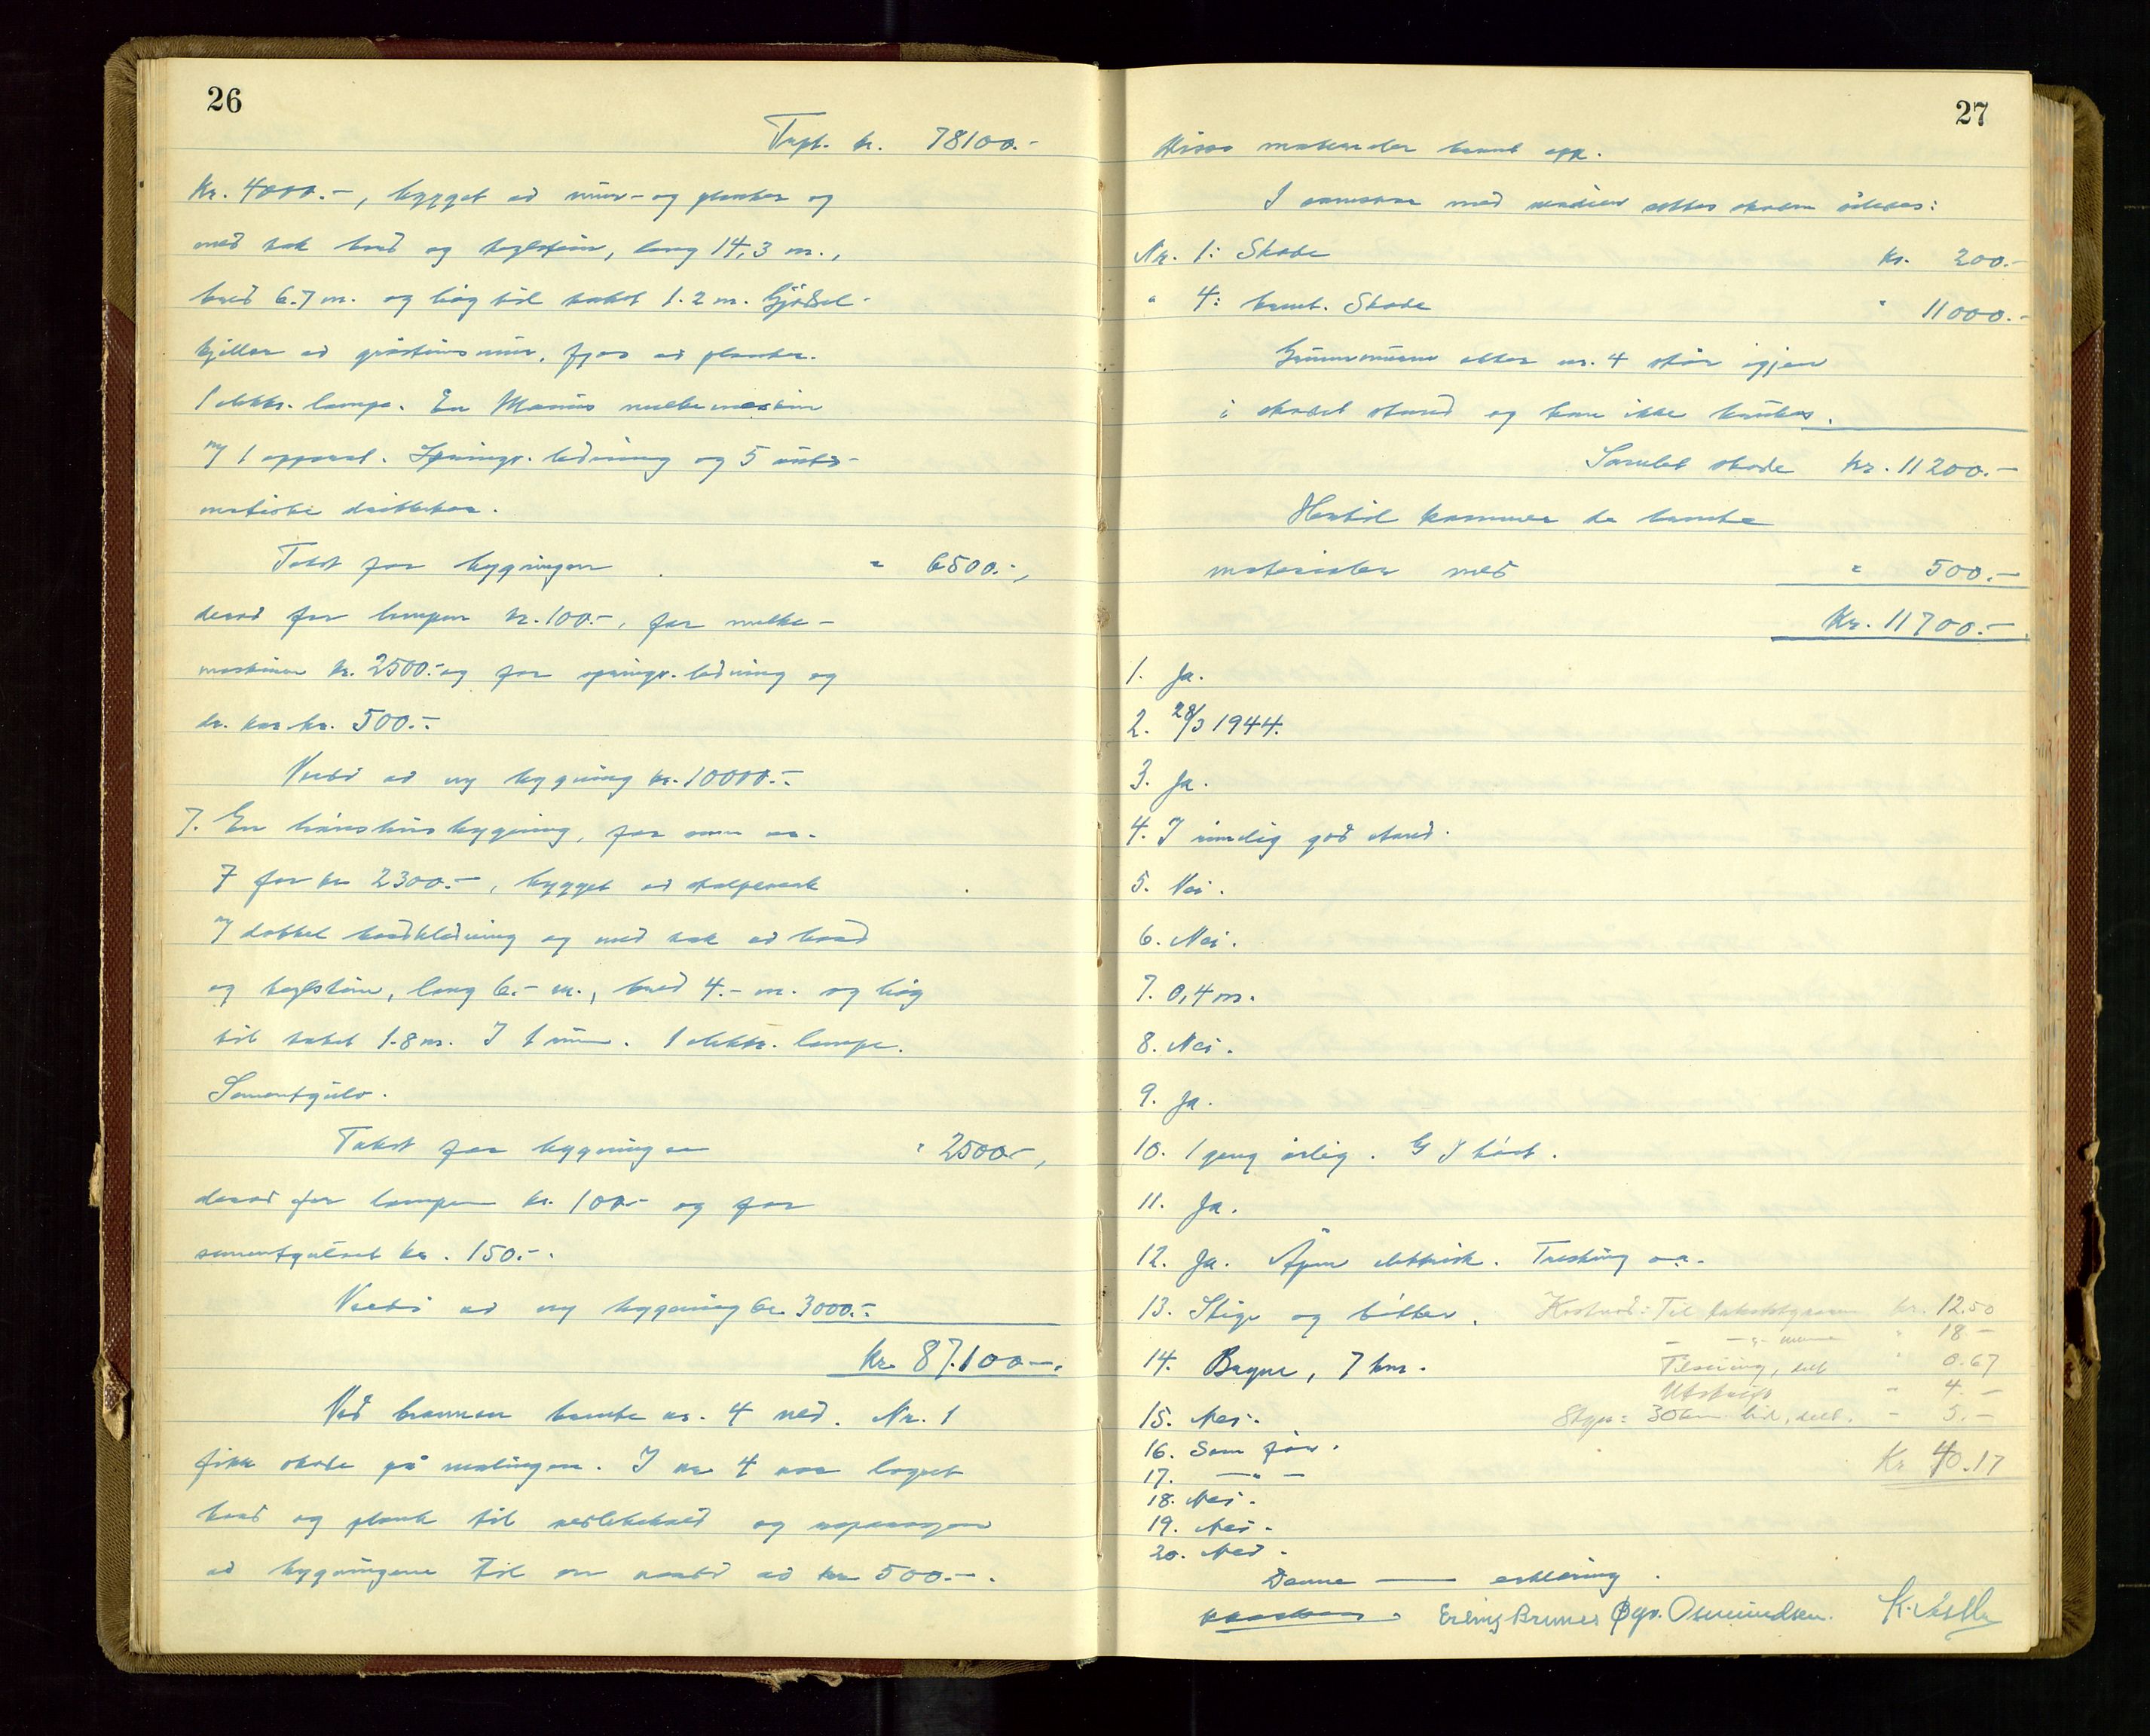 26
Trpt. kr. 78100.-
Kr. 4000.-, bygget av mur- og planker og
med tak bord og teglstein, lang 14,3 m.,
bred 6.7 m. og høg til taket 1.2 m. Gjødsel-
kjeller av gråsteinsmur, fjøs av planker.
1 elektr. lampe. En Manus melkemaskin
m/ 1 apparat. Springv. ledning og 5 auto-
matiske drikkekar.
Takst for bygningen " 6500.-,
derav for lampen kr. 100.-, for melke-
maskinen kr. 2500.- og for springv. ledning og
dr. kar kr. 500.-.
Verdi av ny bygning kr. 10000.-.
7. En hønsehusbygning, før som nr.
7 for kr 2300.-, bygget av stolpeverk
m/ dobbel bordkledning og med tak av bord
og teglstein, lang 6.- m., bred 4.- m. og høg
til taket 1.8 m. I 1 rum. 1 elektr. lampe.
Sementgulv.
Takst for bygningen " 2500.-,
derav for lampen kr. 100.- og for
sementgulvet kr. 150.-.
Verdi av ny bygning kr. 3000.-.
kr. 87.100.-.
Ved brannen brente nr. 4 ned. Nr. 1
fikk skade på malingen. I nr 4 var lagret
bord og plank til vedlikehold og reparasjon
av bygningene til en verdi av kr 500.-.
27
Disse materialer brant opp.
I samsvar med verdien settes skaden således:
Nr. 1: Skade kr. 200.-
" 4: brent. Skade " 11000.-
Grunnmuren etter nr. 4 står igjen
i skadet stand og kan ikke brukes.
Samlet skade kr. 11200.-
Hertil kommer de brente
materialer med " 500.-
Kr. 11700.-
1. Ja.
2. 28/3 1944.
3. Ja.
4. I rimelig god stand.
5. Nei.
6. Nei.
7. 0,4 m.
8. Nei.
9. Ja.
10. 1 gang årlig. I høst.
11. Ja.
12. Ja. Åpen elektrisk. Tresking o.a.
13. Stige og bøtter. Kostnad: Til takstbgrann kr. 12.50
— —"— menn " 18 —
14. Bryne, 7 km. Tilsening, delt " 0.67
Utskrift " 4. —
15. Nei. Skyss: 30 km bil, delt. - 5.—
16. Som før.
17. —"— Kr 40.17
18. Nei.
19. Nei.
20. Nei.
Denne —— erklæring.
Erling Brunes Øyv. Osmundsen.